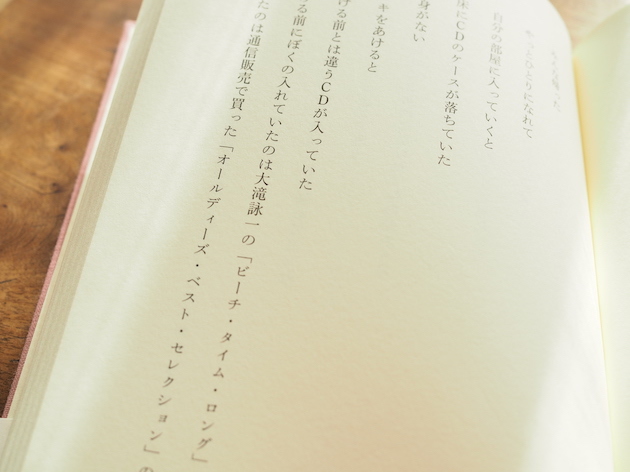 やっとひとりになれて
自分の部屋に入っていくと
床にCDのケースが落ちていた
身がない
キをあけると
ける前とは違うCDが入っていた
る前にぼくの入れていたのは大滝詠一の「ピーチ・タイム・ロング」
たのは通信販売で買った「オールディーズ・ベスト・セレクション」の